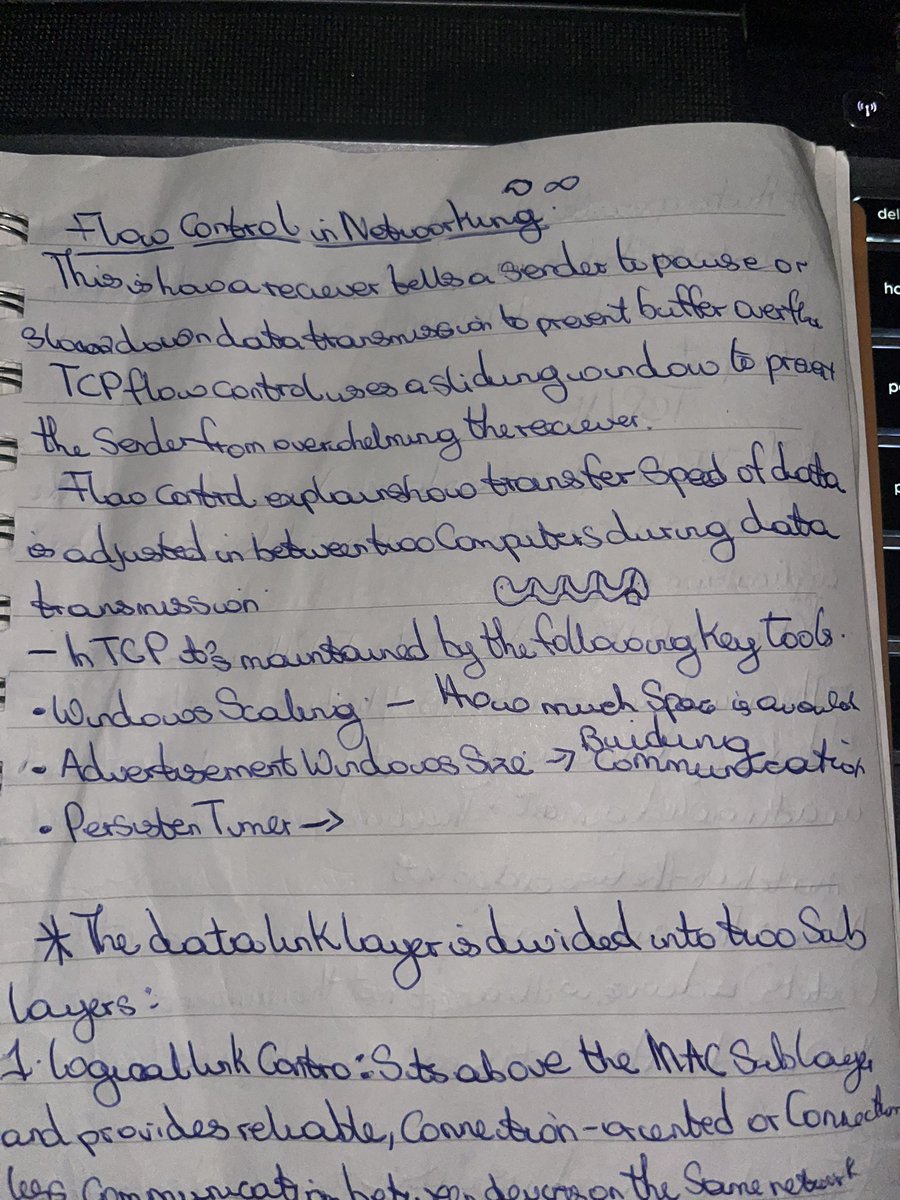 Flow Control in Networking.
This is how a reciever tells a sender to pause or
slow down data transmission to prevent buffer overflow
TCP flow control uses a sliding window to prevent
the Sender from overwhelming the reciever.
Flow Control explains how transfer Speed of data
is adjusted in between two Computers during data
transmission
- In TCP it's maintained by the following Key Tools.
• Windows Scaling - How much Space is available
• Advertisement Windows Size → Building Communication
• Persisten Timer →
* The data link layer is divided into two Sub
layers:
1. Logical link Contro: Sits above the MAC Sublayer
and provides reliable, Connection-oriented or Connection
less Communication between devices on the Same network
del